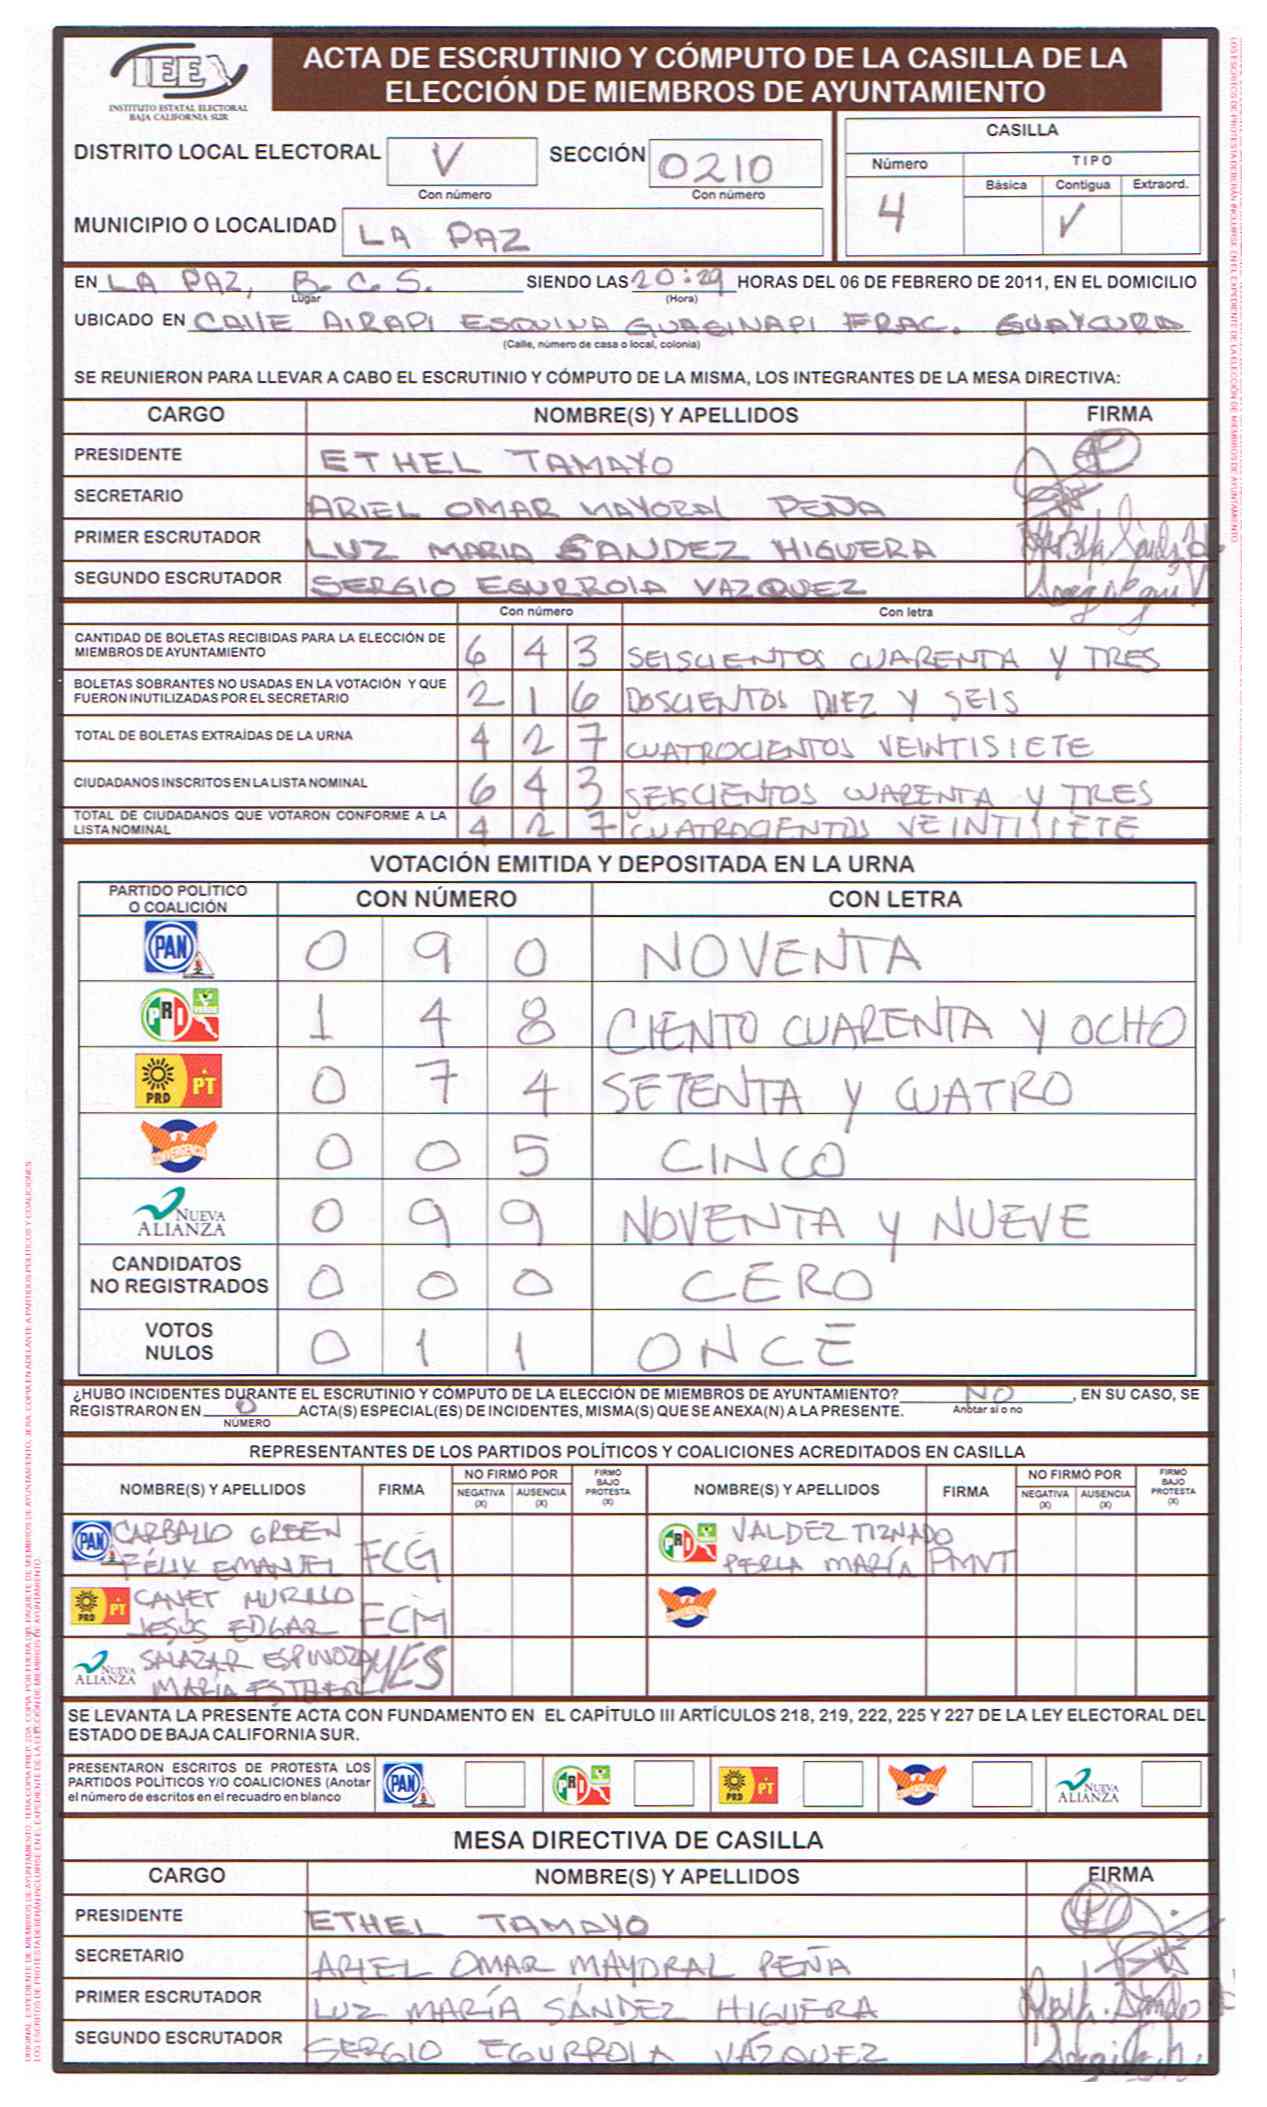 IEE
INSTITUTO ESTATAL ELECTORAL
BAJA CALIFORNIA SUR
ACTA DE ESCRUTINIO Y CÓMPUTO DE LA CASILLA DE LA
ELECCIÓN DE MIEMBROS DE AYUNTAMIENTO
DISTRITO LOCAL ELECTORAL V SECCIÓN 0210
Con número Con número
MUNICIPIO O LOCALIDAD LA PAZ
CASILLA
Número TIPO
Básica Contigua Extraord.
4 ✓
EN LA PAZ, B.C.S. SIENDO LAS 20:29 HORAS DEL 06 DE FEBRERO DE 2011, EN EL DOMICILIO
Lugar (Hora)
UBICADO EN CALLE AIRAPI ESQUINA GUAGINAPI FRAC. GUAYCURA
(Calle, número de casa o local, colonia)
SE REUNIERON PARA LLEVAR A CABO EL ESCRUTINIO Y CÓMPUTO DE LA MISMA, LOS INTEGRANTES DE LA MESA DIRECTIVA:
CARGO NOMBRE(S) Y APELLIDOS FIRMA
PRESIDENTE ETHEL TAMAYO
SECRETARIO ARIEL OMAR MAYORAL PEÑA
PRIMER ESCRUTADOR LUZ MARIA SANDEZ HIGUERA
SEGUNDO ESCRUTADOR SERGIO EGURROLA VAZQUEZ
Con número Con letra
CANTIDAD DE BOLETAS RECIBIDAS PARA LA ELECCIÓN DE
MIEMBROS DE AYUNTAMIENTO 6 4 3 SEISCIENTOS CUARENTA Y TRES
BOLETAS SOBRANTES NO USADAS EN LA VOTACIÓN Y QUE
FUERON INUTILIZADAS POR EL SECRETARIO 2 1 6 DOSCIENTOS DIEZ Y SEIS
TOTAL DE BOLETAS EXTRAÍDAS DE LA URNA 4 2 7 CUATROCIENTOS VEINTISIETE
CIUDADANOS INSCRITOS EN LA LISTA NOMINAL 6 4 3 SEISCIENTOS CUARENTA Y TRES
TOTAL DE CIUDADANOS QUE VOTARON CONFORME A LA
LISTA NOMINAL 4 2 7 CUATROCIENTOS VEINTISIETE
VOTACIÓN EMITIDA Y DEPOSITADA EN LA URNA
PARTIDO POLÍTICO
O COALICIÓN CON NÚMERO CON LETRA
PAN 0 9 0 NOVENTA
PRI VERDE 1 4 8 CIENTO CUARENTA Y OCHO
PRD PT 0 7 4 SETENTA Y CUATRO
CONVERGENCIA 0 0 5 CINCO
NUEVA ALIANZA 0 9 9 NOVENTA Y NUEVE
CANDIDATOS
NO REGISTRADOS 0 0 0 CERO
VOTOS
NULOS 0 1 1 ONCE
¿HUBO INCIDENTES DURANTE EL ESCRUTINIO Y CÓMPUTO DE LA ELECCIÓN DE MIEMBROS DE AYUNTAMIENTO? NO, EN SU CASO, SE
REGISTRARON EN 0 ACTA(S) ESPECIAL(ES) DE INCIDENTES, MISMA(S) QUE SE ANEXA(N) A LA PRESENTE. Anotar si o no
NÚMERO
REPRESENTANTES DE LOS PARTIDOS POLÍTICOS Y COALICIONES ACREDITADOS EN CASILLA
NOMBRE(S) Y APELLIDOS FIRMA NO FIRMÓ POR NEGATIVA (X) AUSENCIA (X) FIRMÓ BAJO PROTESTA (X) NOMBRE(S) Y APELLIDOS FIRMA NO FIRMÓ POR NEGATIVA (X) AUSENCIA (X) FIRMÓ BAJO PROTESTA (X)
PAN CARBALLO GREEN
FÉLIX EMANUEL FCG
PRI VALDEZ TIZNADO
PERLA MARÍA PMVT
PRD PT CANET MURILLO
JESÚS EDGAR ECM
NUEVA ALIANZA SALAZAR ESPINOZA
MARÍA ESTHER MES
SE LEVANTA LA PRESENTE ACTA CON FUNDAMENTO EN EL CAPÍTULO III ARTÍCULOS 218, 219, 222, 225 Y 227 DE LA LEY ELECTORAL DEL
ESTADO DE BAJA CALIFORNIA SUR.
PRESENTARON ESCRITOS DE PROTESTA LOS
PARTIDOS POLÍTICOS Y/O COALICIONES (Anotar
el número de escritos en el recuadro en blanco
PAN PRI PRD PT NUEVA ALIANZA
MESA DIRECTIVA DE CASILLA
CARGO NOMBRE(S) Y APELLIDOS FIRMA
PRESIDENTE ETHEL TAMAYO
SECRETARIO ARIEL OMAR MAYORAL PEÑA
PRIMER ESCRUTADOR LUZ MARÍA SÁNDEZ HIGUERA
SEGUNDO ESCRUTADOR SERGIO EGURROLA VÁZQUEZ